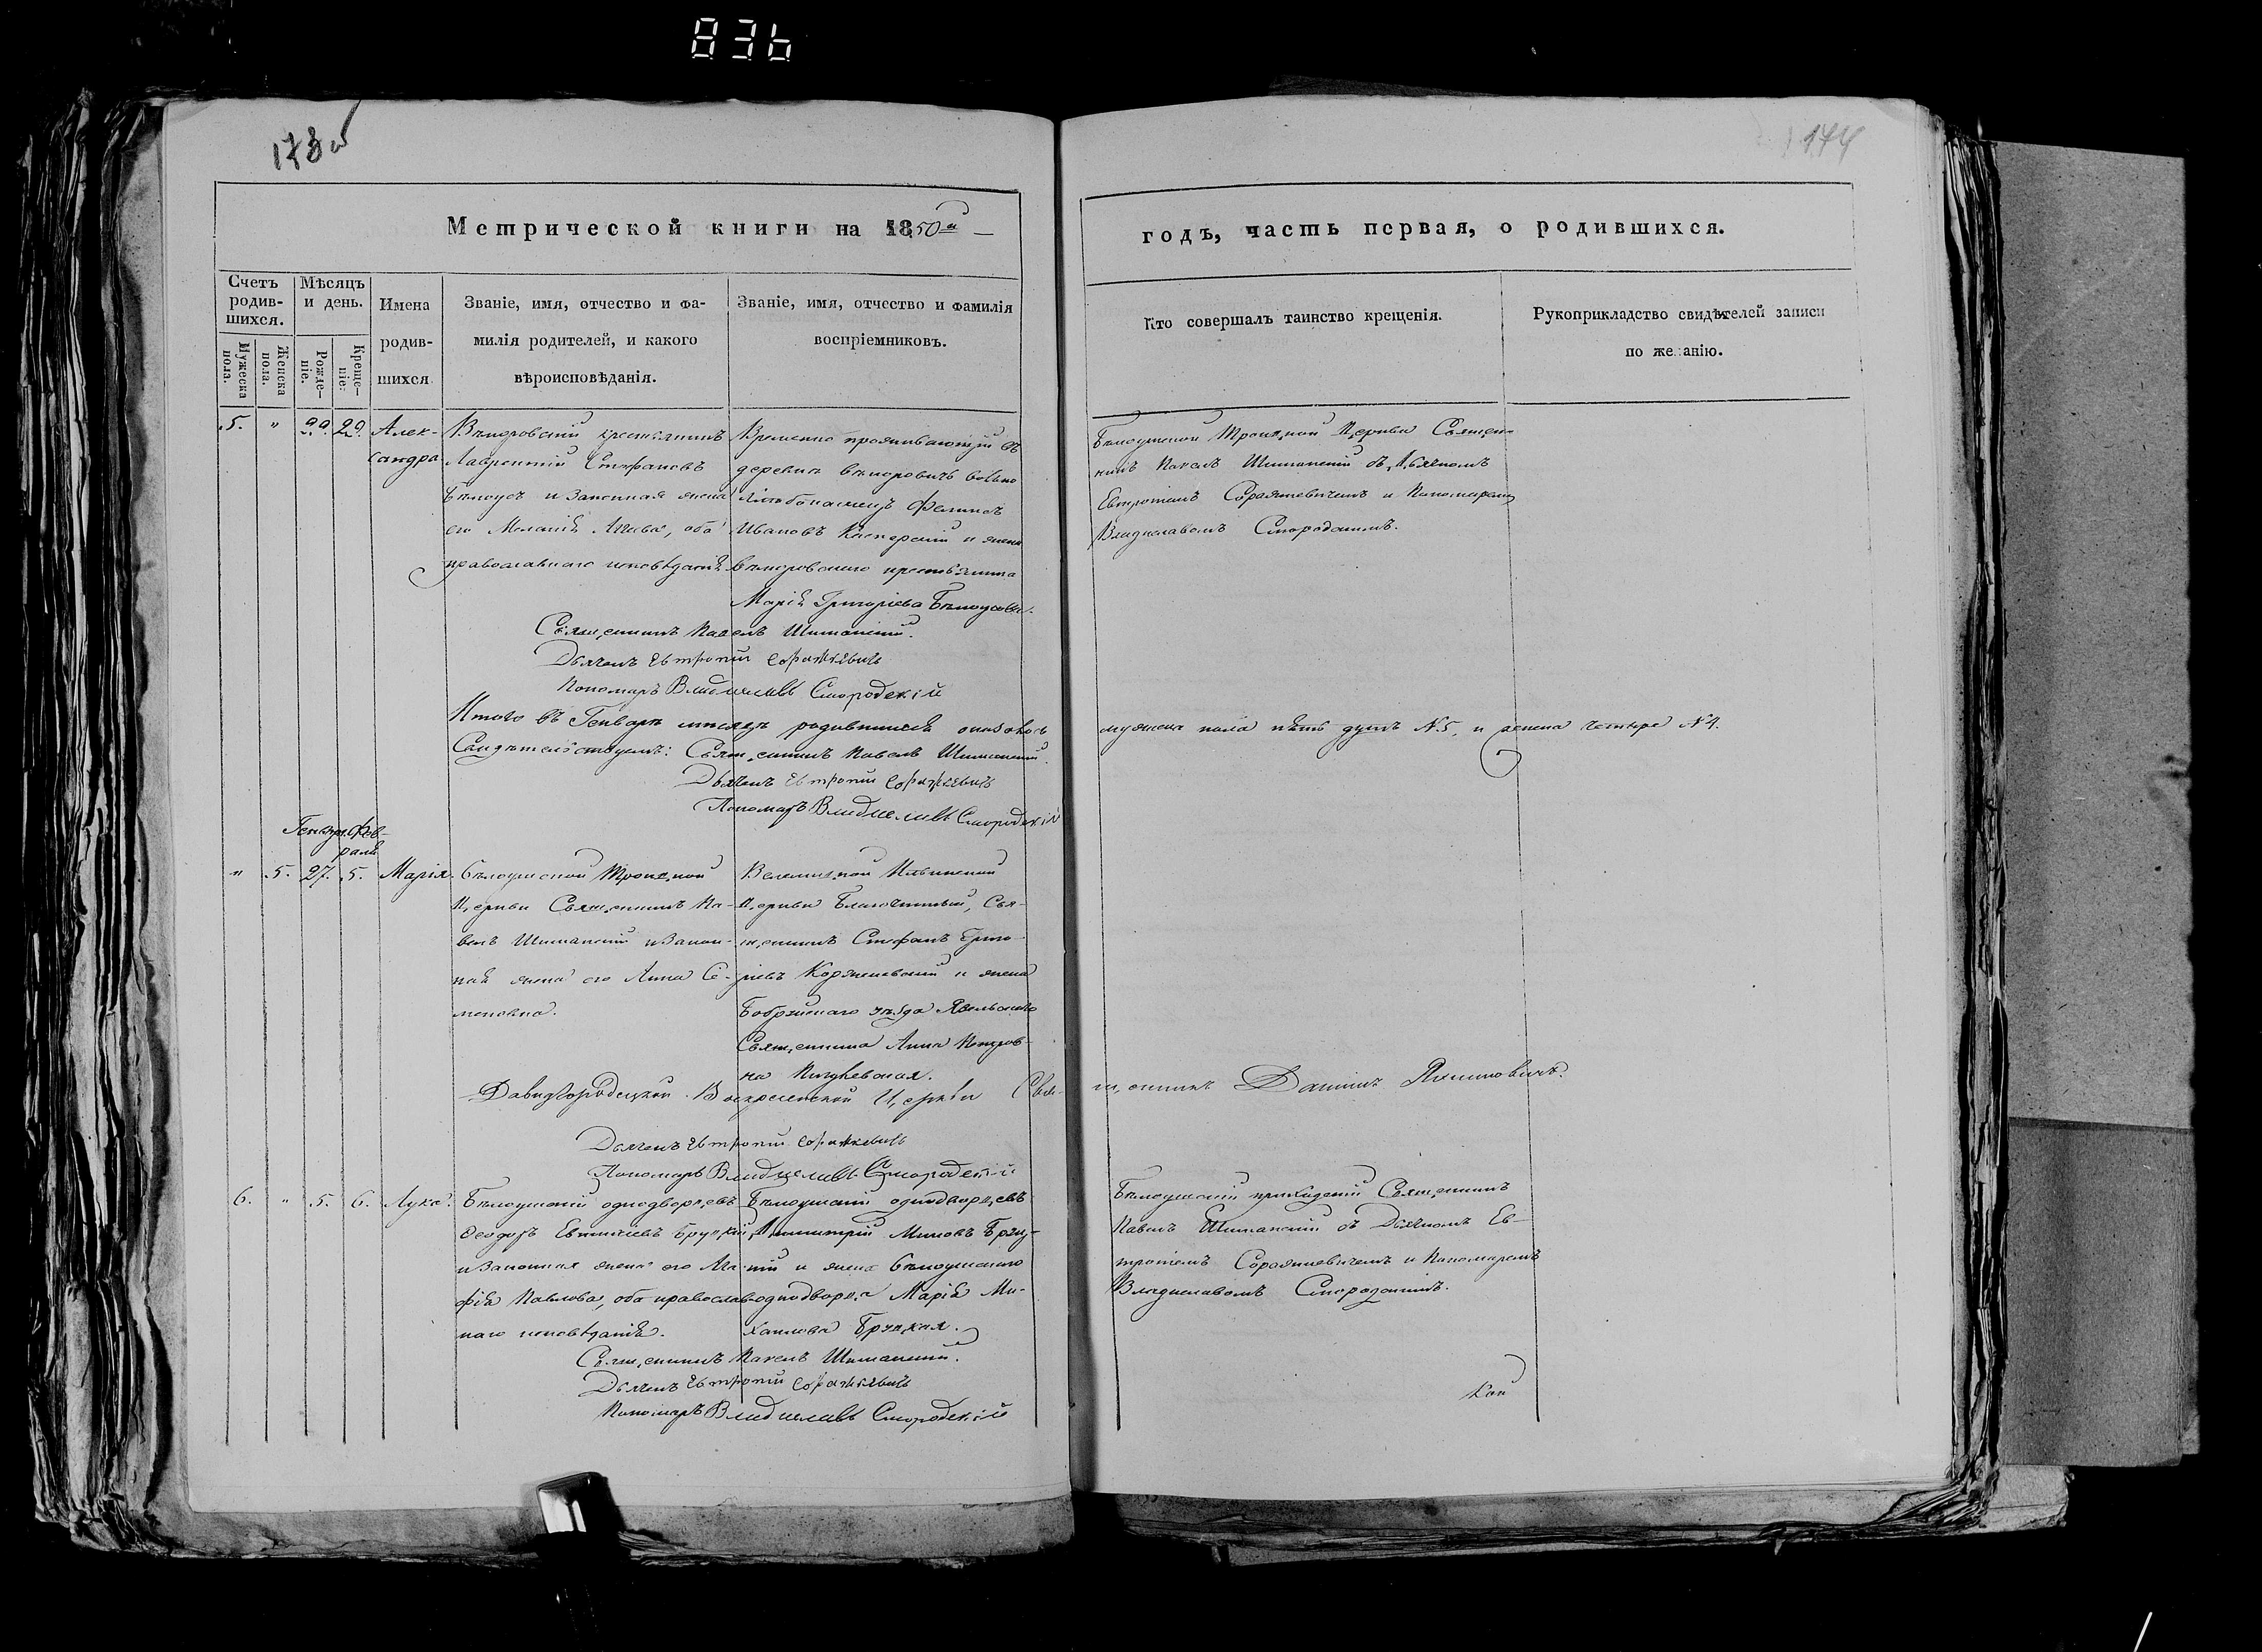 836
173 об
174
Метрической книги на 1850й
годъ, часть первая, о родившихся.
Счетъ родив-шихся.
Мужеска пола.
Женска пола.
Мѣсяцъ и день.
Рожде-ніе.
Креще-ніе.
Имена родив-шихся
Званіе, имя, отчество и фа-
милія родителей, и какого
вѣроисповѣданія.
Званіе, имя, отчество и фамилія
воспріемниковъ.
Кто совершалъ таинство крещенія.
Рукоприкладство свидѣтелей записи
по же анію.
5. " 29. 29. Алек-
сандра
крестьянинъ
Лаврентій Стефановъ
Бѣлоусъ и законная жена
его Меланія, оба
православнаго исповѣданія
Временно проживающій въ
деревнѣ вольно
Иванова и жена
крестьянина
Марія Григоріева Бѣлоусова.
Бѣлоушской Троицкой Церкви Священ-
никъ Павелъ Шиманскій съ Дьячкомъ
Евтропіемъ Соражкевичемъ и Пономаремъ
Владиславомъ Смородскимъ.
Священникъ Павелъ Шиманскій.
Дьячекъ Евтропій Соражкевичь
Пономарь Владиславъ Смородскій
Итого въ Генварѣ мѣсяцѣ родившихся оказалось
мужеска пола пять душъ №5, и женска четыре №4.
Свидѣтельствуемъ: Священникъ Павелъ Шиманскій.
Дьячекъ Евтропій Соражкевичь
Пономарь Владиславъ Смородскій
Генвар. Фев-
раля
" 5. 27. 5. Марія.
Бѣлоушской Троицкой
Церкви Священникъ Па-
велъ Шиманскій и закон-
ная жена его Анна Се-
меновна.
Ильинской
Церкви Благочинный, Свя-
щенникъ Стефанъ Григо-
ріевъ и жена
уѣзда
Священника Анна Петров-
на
Давидгородецкой Воскресенской Церкви Свя-
щенникъ Даніилъ Якимовичъ.
Дьячекъ Евтропій Соражкевичь
Пономарь Владиславъ Смородскій
6. " 5. 6. Лука.
Бѣлоушскій однодворецъ
Ѳеодоръ
и законная жена его Ма-
Павлова, оба православ-
наго исповѣданія.
Бѣлоушскій однодворецъ
Димитрій
и жена бѣлоушскаго
однодворца Марія Ми-
хаилова
Бѣлоушскій приходскій Священникъ
Павелъ Шиманскій съ Дьячкомъ Ев-
тропіемъ Соражкевичемъ и Пономаремъ
Владиславомъ Смородскимъ.
Священникъ Павелъ Шиманскій.
Дьячекъ Евтропій Соражкевичь
Пономарь Владиславъ Смородскій